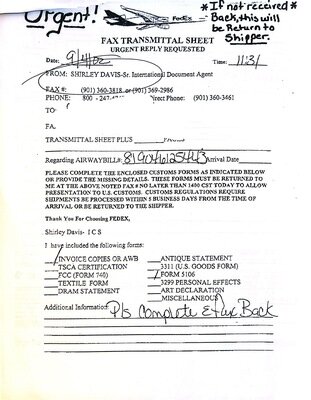 Urgent!
FedEx
* If not received *
Back, this will
be Return to
Shipper.
FAX TRANSMITTAL SHEET
URGENT REPLY REQUESTED
Date: 9/4/02 Time: 11:31
FROM: SHIRLEY DAVIS-Sr. International Document Agent
FAX #: (901) 360-3818 or (901) 369-2986
PHONE: 800 - 247- Direct Phone: (901) 360-3461
TO
FA
TRANSMITTAL SHEET PLUS
Regarding AIRWAYBILL#: Arrival Date
PLEASE COMPLETE THE ENCLOSED CUSTOMS FORMS AS INDICATED BELOW
OR PROVIDE THE MISSING DETAILS. THESE FORMS MUST BE RETURNED TO
ME AT THE ABOVE NOTED FAX # NO LATER THAN 1400 CST TODAY TO ALLOW
PRESENTATION TO U.S. CUSTOMS. CUSTOMS REGULATIONS REQUIRE
SHIPMENTS BE PROCESSED WITHIN 5 BUSINESS DAYS FROM THE TIME OF
ARRIVAL OR BE RETURNED TO THE SHIPPER.
Thank You For Choosing FEDEX,
Shirley Davis- I C S
I have included the following forms:
INVOICE COPIES OR AWB ANTIQUE STATEMENT
TSCA CERTIFICATION 3311 (U.S. GOODS FORM)
FCC (FORM 740) FORM 5106
TEXTILE FORM 3299 PERSONAL EFFECTS
DRAM STATEMENT ART DECLARATION
MISCELLANEOUS
Additional Information: Pls Complete & Fax Back